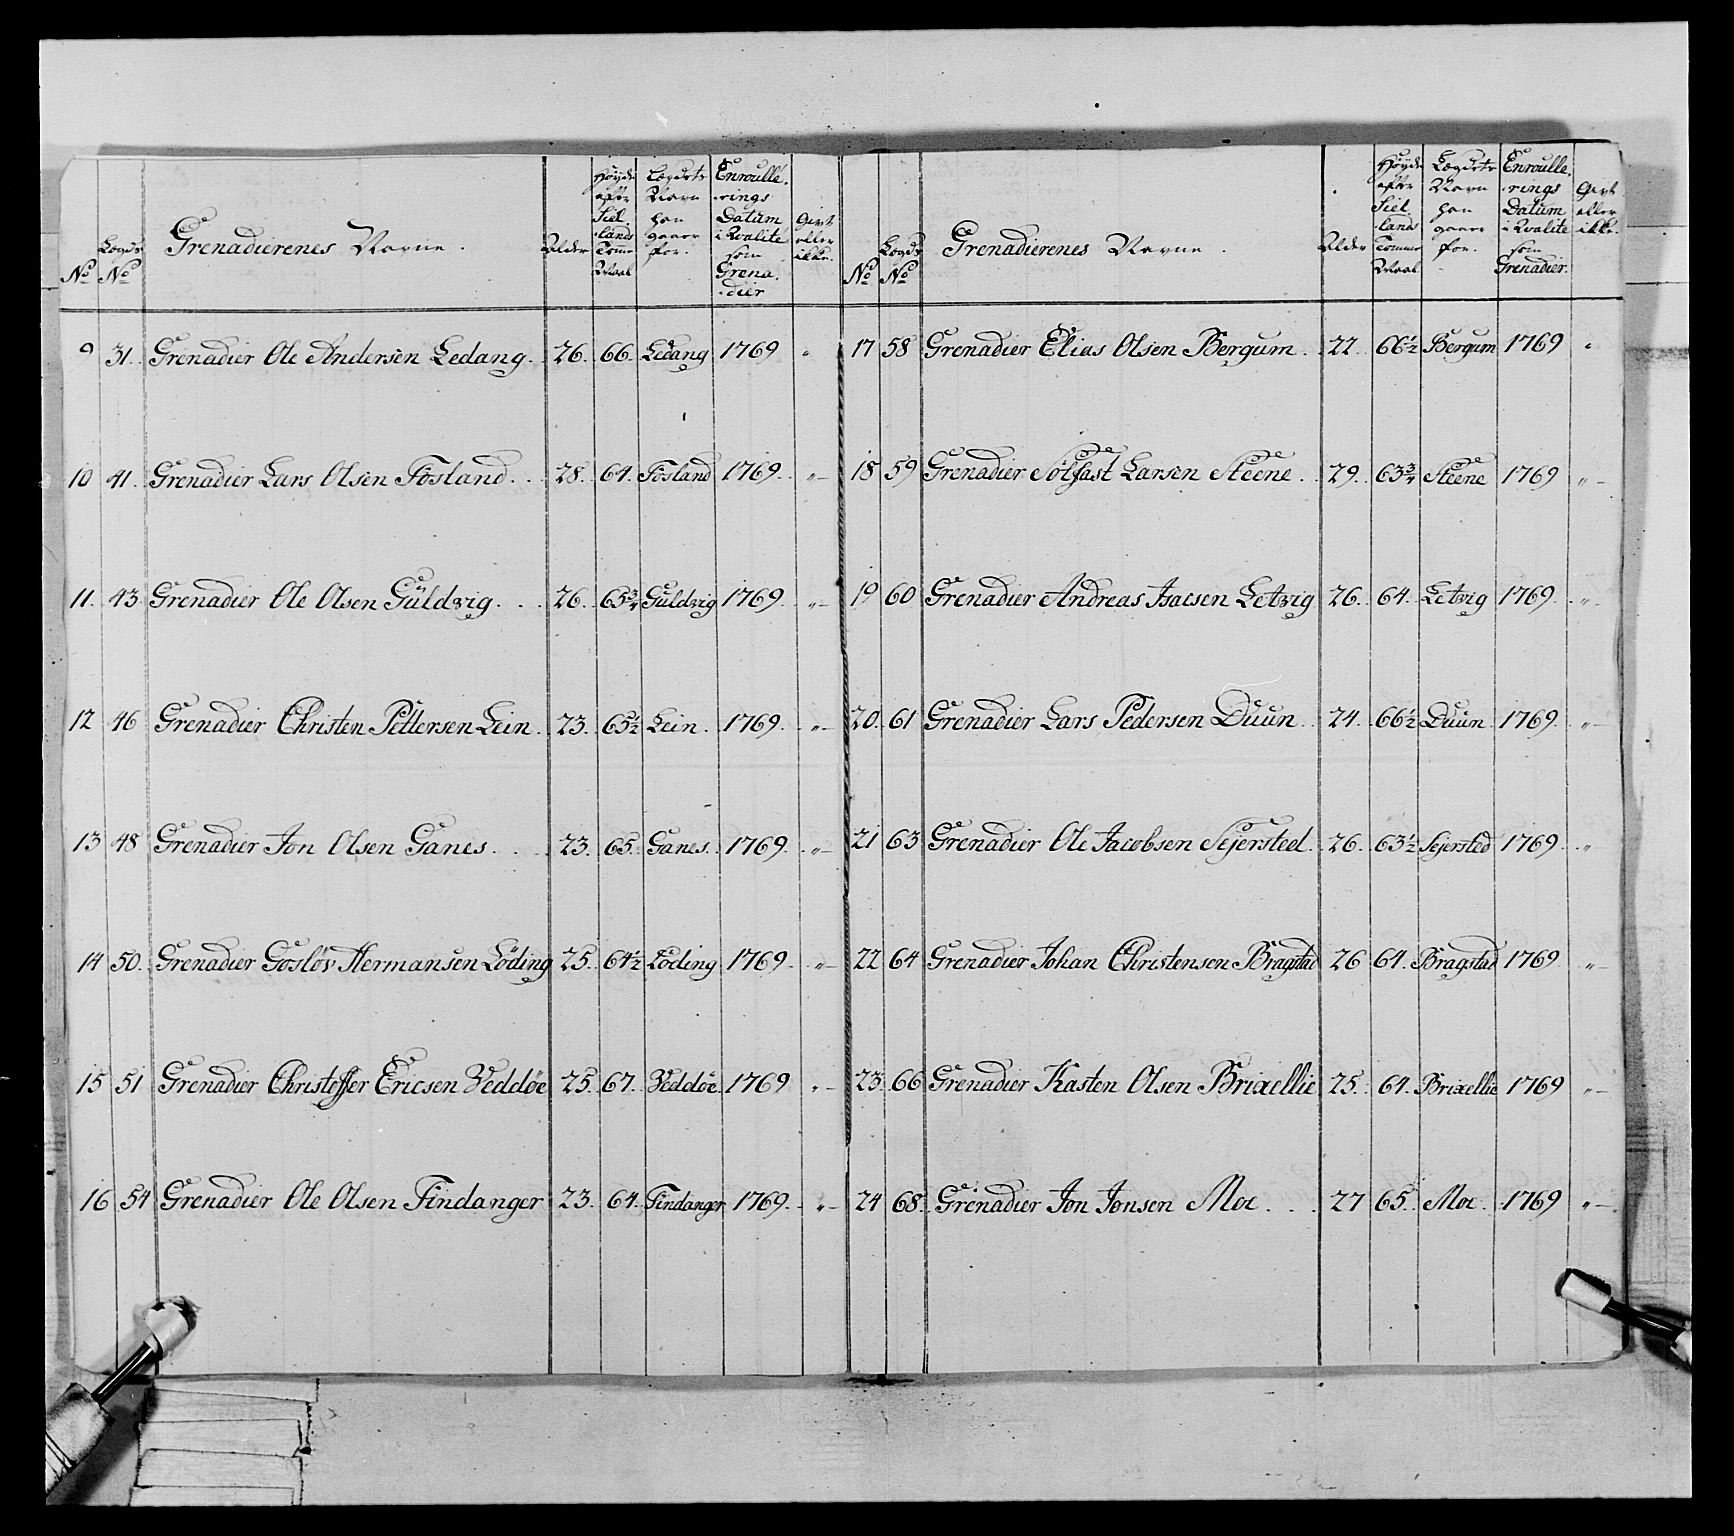 No
Lægds No
Grenadierenes Navne.
Alder
Høyde efter Siel. lands Tomme Maal
Lægdets Navn han gaaer for.
Enroulle. rings Datum i Qvalite som Grena. dier
Givt eller ikke.
9 31. Grenadier Ole Andersen Ledang. 26. 66. Ledang 1769 "
10 41. Grenadier Lars Olsen Fosland. 28. 64. Fosland 1769. "
11. 43 Grenadier Ole Olsen Guldvig. 26. 65¾ Guldvig 1769. "
12 46 Grenadier Christen Pettersen Lein. 23. 65½ Lein. 1769. "
13 48 Grenadier Jon Olsen Ganes. 23. 65. Ganes. 1769. "
14 50. Grenadier Gosløv Hermansen Löding 25. 64½ Löding 1769. "
15 51 Grenadier Christoffer Ericsen Veddøe 25. 67. Veddøe 1769 "
16 54 Grenadier Ole Olsen Findanger 23. 64. Findanger 1769. "
No
Lægds No
Grenadierenes Navne.
Alder
Høyde efter Siel. lands Tomme Maal
Lægdets Navn han gaaer for.
Enroulle. rings Datum i Qvalite som Grenadier.
Givt eller ikke.
17 58 Grenadier Elias Olsen Bergum. 22. 66½ Bergum 1769 "
18 59 Grenadier Solfast Larsen Steene. 29. 63¾ Steene 1769 "
19 60 Grenadier Andreas Isacsen Letvig 26. 64. Letvig 1769. "
20. 61 Grenadier Lars Pedersen Duun. 24. 66½ Duun. 1769. "
21 63 Grenadier Ole Jacobsen Sejersted. 26. 63½ Sejersted 1769. "
22 64 Grenadier Johan Christensen Bragstad 26 64. Bragstad 1769. "
23. 66 Grenadier Kasten Olsen Brixellie 25. 64. Brixellie 1769 "
24 68. Grenadier Jon Jonsen Moe. 27 65. Moe. 1769 "